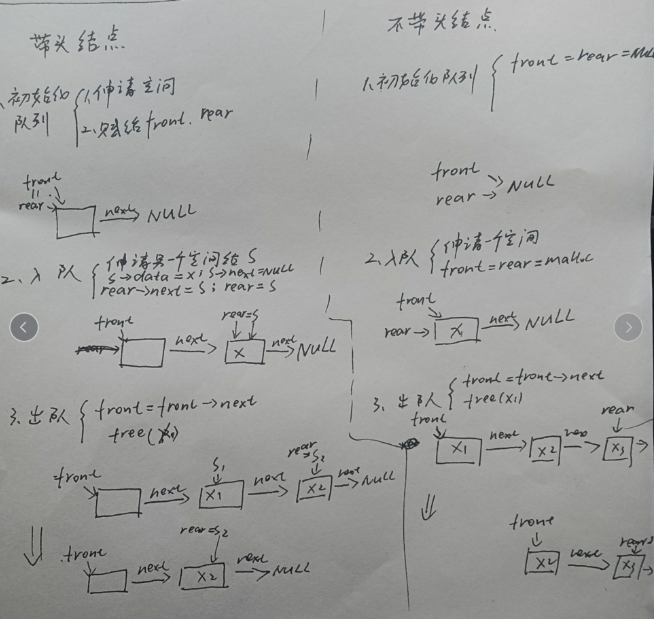 带头结点
1.初始化队列 {1.申请空间
2.赋给front. rear
front
||
rear→ next→ NULL
2、入队 {申请另一个空间给S
S→data=x; S→next=NULL
rear→next=S; rear=S
front rear=S
next→ X next→ NULL
3.出队 {front=front→next
free(X1)
front S1 rear=S2
next→ X1 next→ X2 next→ NULL
front rear=S2
next→ X2 next→ NULL
不带头结点
1.初始化队列 {front=rear=NULL
front
rear → NULL
2.入队 {申请一个空间
front=rear=malloc
front
rear→ X next→ NULL
3、出队 {front=front→next
free(X1)
front rear
X1 next→ X2 nex→ X3
front rear
X2 next→ X3